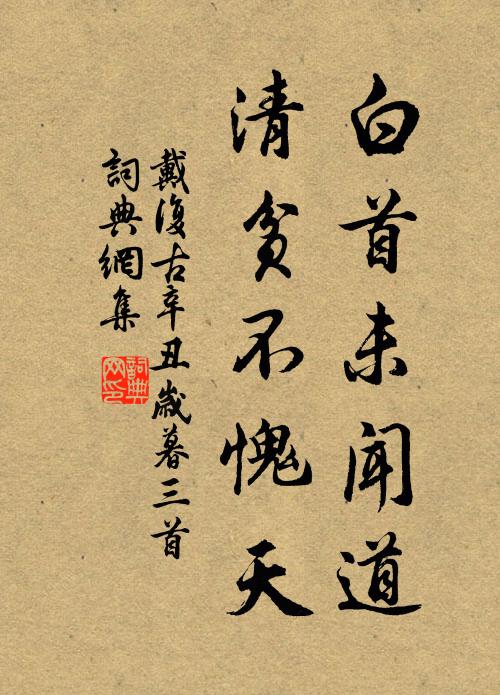 白首未聞道
清貧不愧天
戴復古辛丑歲暮三首
詞典網集
詞典
网印